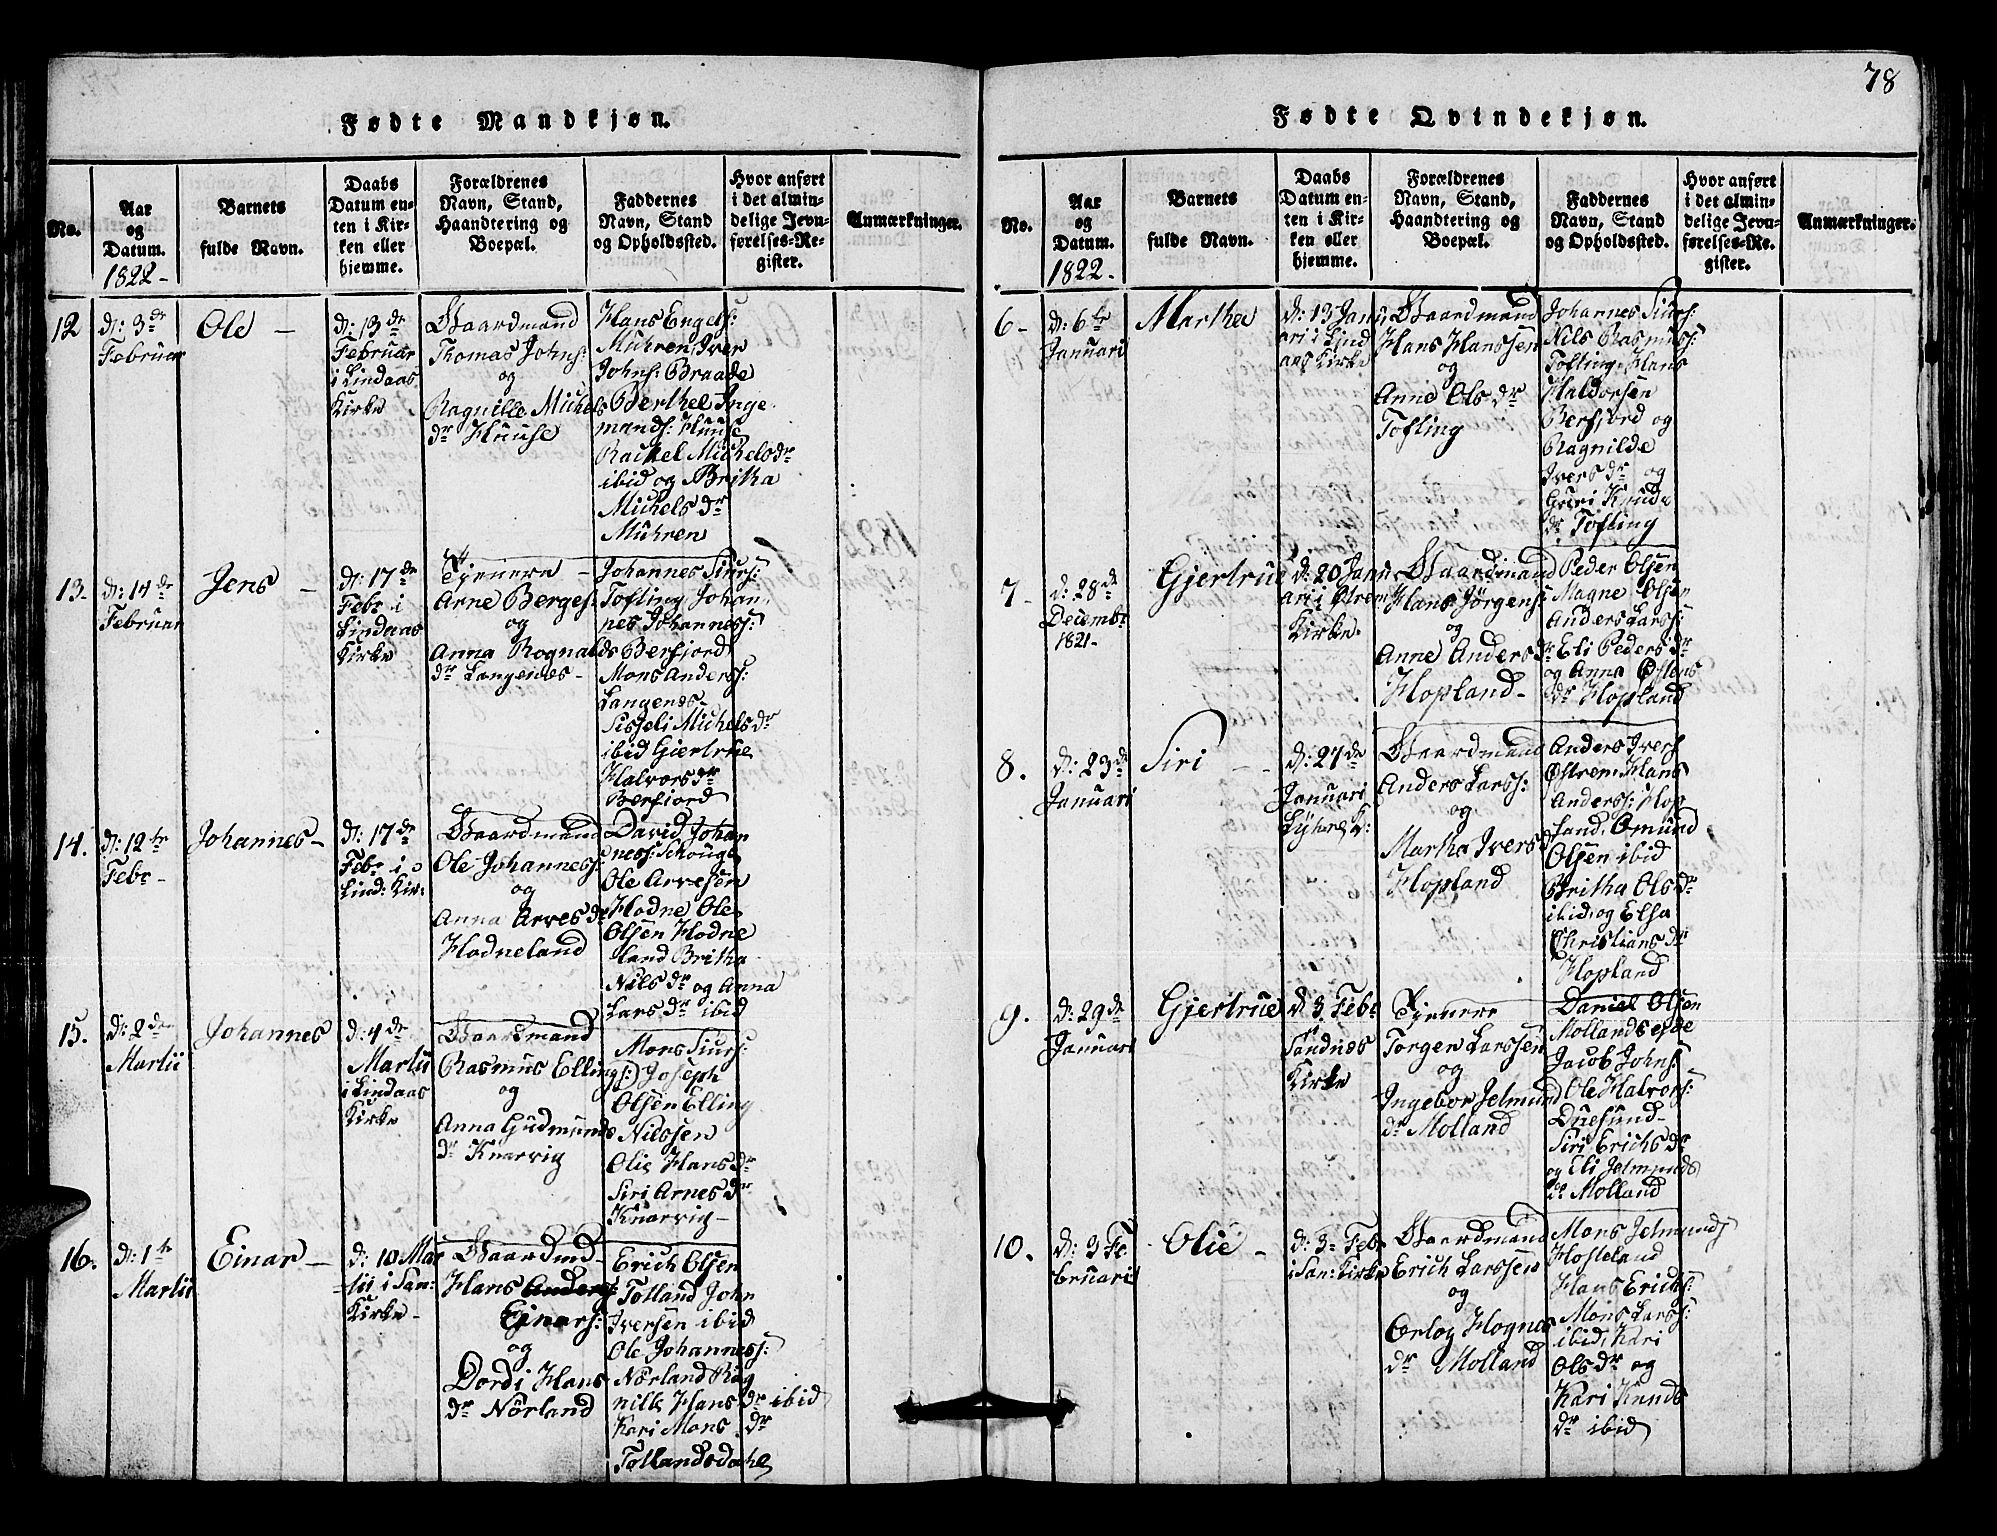 78
Fødte Mandkjøn.
No.
Aar
og
Datum.
1822-
Barnets
fulde Navn.
Daabs
Datum en-
ten i Kir-
ken eller
hjemme.
Forældrenes
Navn, Stand,
Haandtering og
Boepæl.
Faddernes
Navn, Stand
og Opholdsted.
Hvor anført
i det almin-
delige Jevn-
førelses-Re-
gister.
Anmærkninger.
12
d: 3de
Februar
Ole -
d: 13de
Februar
i Lindaas
Kirke
Gaardmand
Thomas Johns:
og
Ragnille Michels
dr Huuse
Hans Engels:
Muhren, Iver
Johns: Braade
Berthel Inge
mands: Huuse
Rachel Michelsdr
ibid og Britha
Michels dr
Muhren
13-
d: 14de
Februar
Jens -
d: 17de
Febr i
Lindaas
Kirke
Tjenere -
Arne Berges:
og
Anna Rognalds
dr Langenæs-
Johannes Siurs:
Tofting Johan
nes Johanness:
Berfjord
Mons Anderss:
Langenæs-
Sisseli Michels dr
ibid Gjertrue
Halvors dr
Berfiord
14.
d: 12te
Febr-
Johannes-
d: 17de
Febr i
Lind: Kir:
Gaardmand
Ole Johanness:
og
Anna Arves dr
Hodneland
David Johan
ness: Schouge
Ole Arvesen
Hodne Ole
Olsen Hodne
land Britha
Nils dr og Anna
Lars dr ibid
15.
d: 2de
Martii
Johannes
d: 4de
Martii
i Lindaas
Kirke
Gaardmand
Rasmus Elling
og
Anna Gudmunds
dr Knarvig
Mons Siurs:
gs:) Joseph
Olsen Elling
Nilssen
Olie Hans dr
Siri Arnes dr
Knarvig-
16.
d: 1te
Martii
Einar-
d: 10 Mar
tii i San:
Kirke-
Gaardmd-
Hans Anders:
Einars:
og
Dordi Hans
dr Nörland
Erich Olsen
Totland John
Iversen ibid
Ole Johanness:
Nörland Rag
nille Hans dr ibid
Kari Mons dr
Totlandsdahl
Fødte Qvindekjøn.
No.
Aar
og
Datum.
1822-
Barnets
fulde Navn.
Daabs
Datum en-
ten i Kir-
ken eller
hjemme.
Forældrenes
Navn, Stand,
Haandtering og
Boepæl.
Faddernes
Navn, Stand
og Opholdsted.
Hvor anført
i det almin-
delige Jevn-
førelses-Re-
gister.
Anmærkninger.
6-
d: 6te
Januari
Martha
d: 13 Janu
ari i Lind
aas Kirke
Gaardmand
Hans Hanssen
og
Anne Ols dr
Tofting
Johannes Siurs:
Nils Rasmuss:
Tofting, Hans
Haldorsen
Berfjord og
Ragnilde
Ivers dr og
Guri Knuds
dr Tofting
7-
d: 28de
Decembr
1821-
Gjertrue
d: 20 Janu
ari i Ostrem
Kirke.
Gaardmand
Hans Jörgens:
og
Anne Anders dr
Hopland-
Peder Olsen
Magne Olsen
Anders Larss:
Eli Peders dr
og Anna Östens
dr Hopland
8.
d: 23de
Januari
Siri - -
d: 27de
Januari
Lÿhre K:
Gaardmand
Anders Larss:
og
Martha Ivers d
Hopland
Anders Ivers
Östrem, Hans
Anderss: Hop
land, Omund
Olsen ibid
Britha Ols dr
ibid, og Elsa
Christians dr
Hopland
9.
d: 29de
Januari
Gjertrue
d 3. Febr
Sandnæs
Kirke
Tjenere
Torger Larssen
og
Ingebor Jelmund
dr Molland
Daniel Olsen
Mollandseide
Jacob Johns:
Ole Halvors:
Duesund-
Siri Erichs dr
og Eli Jelmunds
dr Molland
10.
d: 3 Fe
bruarii
Olie -
d: 3. Feb
i San: Kirke
Gaardmand
Erich Larssen
og
Orloy Hognas
dr Molland
Mons Jelmunds
Hosteland
Hans Erichs:
Mons Larss:
ibid, Kari
Ols dr og
Kari Knuds
dr ibid